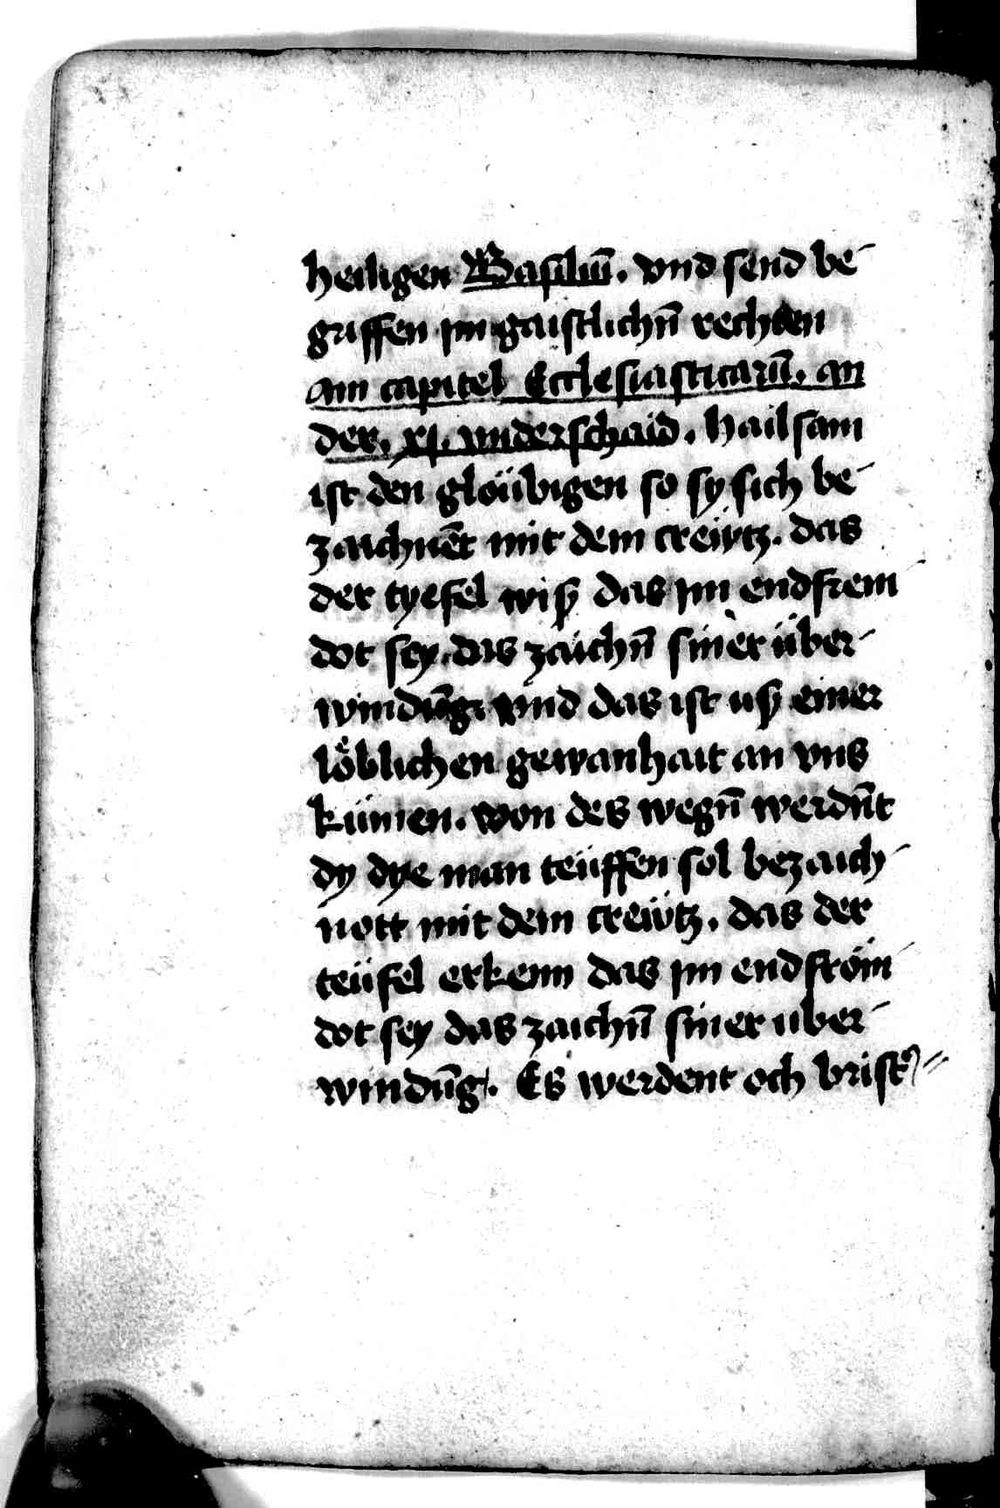 heiligen Basiliū. vnd send be-
griffen im gaistlichn̄ rechten
am capitel Ecclesiasticarū. an
der. xj. vnderschaid. Hailsam
ist den gloübigen so sy sich be-
zaichnēt mit dem creütz. das
der tyefel wiß das im endfrem-
dot sey. das zaichn̄ siner über-
windūg. vnd das ist uß einer
löblichen gewanhait an vns
kümen. won des wegn̄ werdn̄t
dy dye man teüffen sol bezaich-
nott mit dem creütz. das der
teüfel erkenn das im endfröm-
dot sey das zaichn̄ siner über-
windūg. Es werdent och brist